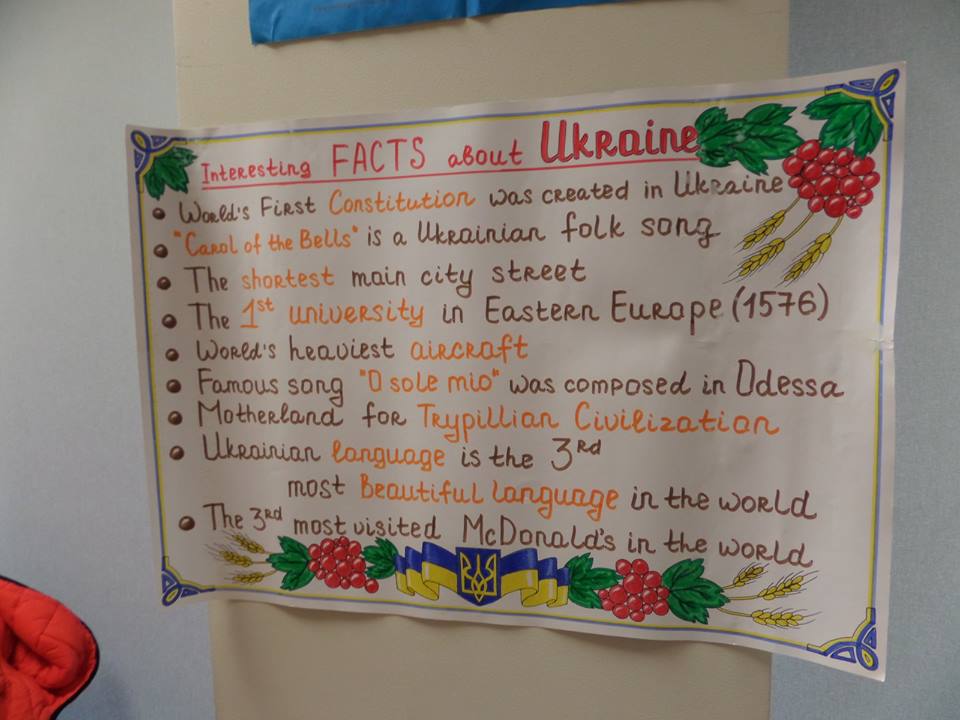 Interesting FACTS about Ukraine
World's First Constitution was created in Ukraine
"Carol of the Bells" is a Ukrainian folk song
The shortest main city street
The 1st university in Eastern Europe (1576)
World's heaviest aircraft
Famous song "O sole mio" was composed in Odessa
Motherland for Trypillian Civilization
Ukrainian language is the 3rd
most Beautiful language in the world
The 3rd most visited McDonald's in the world